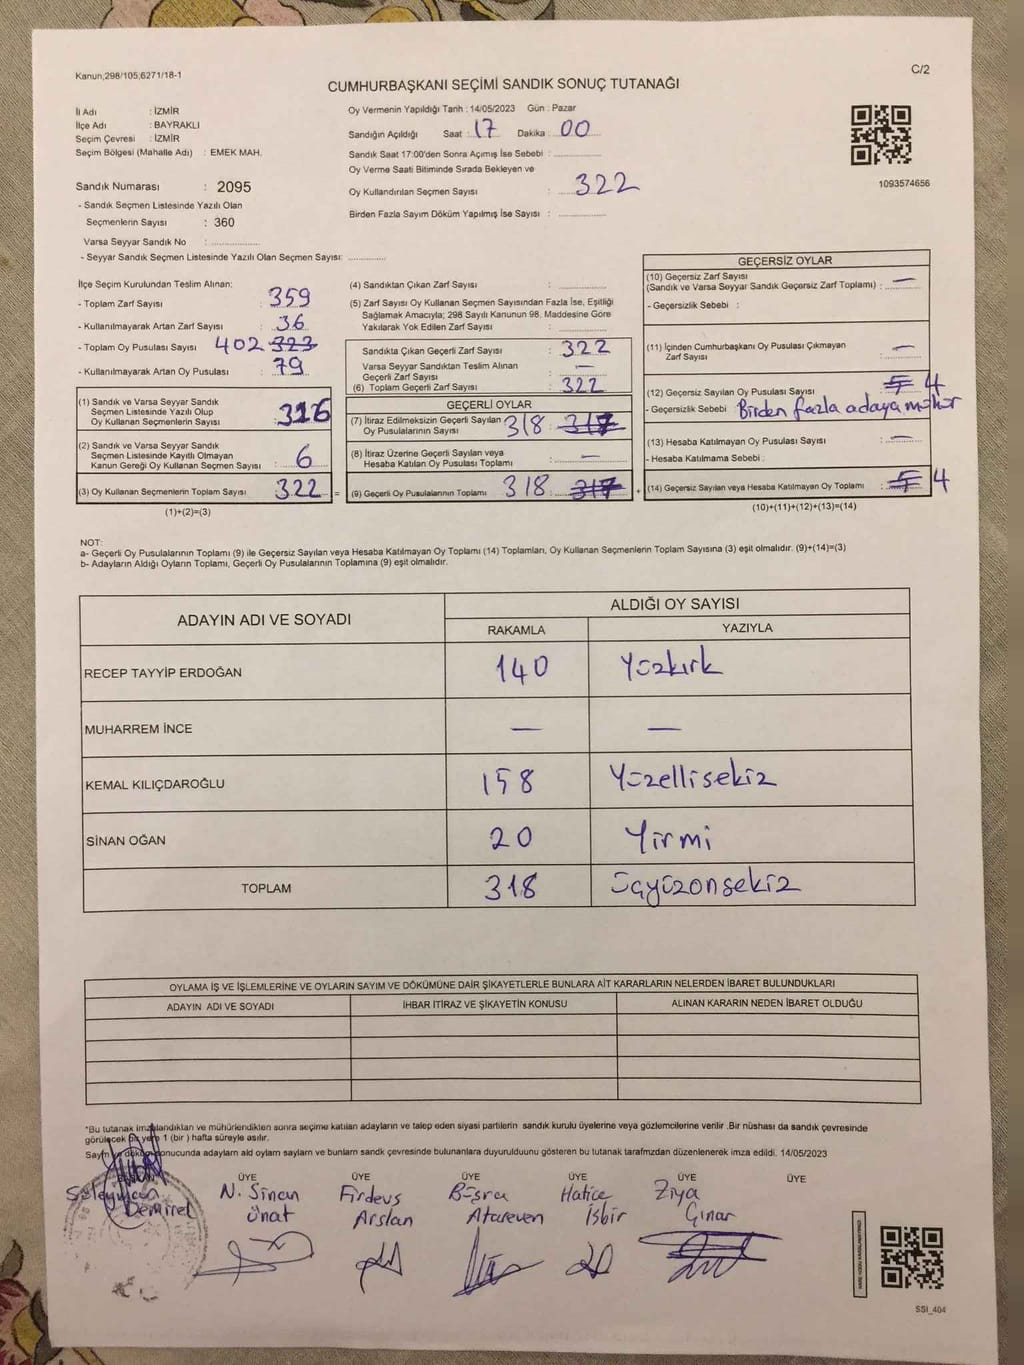 Kanun,298/105,6271/18-1
C/2
CUMHURBAŞKANI SEÇİMİ SANDIK SONUÇ TUTANAĞI
İl Adı : İZMİR
İlçe Adı : BAYRAKLI
Seçim Çevresi : İZMİR
Seçim Bölgesi (Mahalle Adı) : EMEK MAH.
Sandık Numarası : 2095
- Sandık Seçmen Listesinde Yazılı Olan
Seçmenlerin Sayısı : 360
Varsa Seyyar Sandık No :
- Seyyar Sandık Seçmen Listesinde Yazılı Olan Seçmen Sayısı:
Oy Vermenin Yapıldığı Tarih : 14/05/2023 Gün : Pazar
Sandığın Açıldığı Saat : 17 Dakika : 00
Sandık Saat 17:00'den Sonra Açımış İse Sebebi :
Oy Verme Saati Bitiminde Sırada Bekleyen ve
Oy Kullandırılan Seçmen Sayısı : 322
Birden Fazla Sayım Döküm Yapılmış İse Sayısı :
1093574656
İlçe Seçim Kurulundan Teslim Alınan:
- Toplam Zarf Sayısı : 359
- Kullanılmayarak Artan Zarf Sayısı : 36
- Toplam Oy Pusulası Sayısı 402 323
- Kullanılmayarak Artan Oy Pusulası : 79
(1) Sandık ve Varsa Seyyar Sandık
Seçmen Listesinde Yazılı Olup
Oy Kullanan Seçmenlerin Sayısı : 316
(2) Sandık ve Varsa Seyyar Sandık
Seçmen Listesinde Kayıtlı Olmayan
Kanun Gereği Oy Kullanan Seçmen Sayısı : 6
(3) Oy Kullanan Seçmenlerin Toplam Sayısı : 322 =
(1)+(2)=(3)
(4) Sandıktan Çıkan Zarf Sayısı :
(5) Zarf Sayısı Oy Kullanan Seçmen Sayısından Fazla İse, Eşitliği
Sağlamak Amacıyla; 298 Sayılı Kanunun 98. Maddesine Göre
Yakılarak Yok Edilen Zarf Sayısı :
Sandıkta Çıkan Geçerli Zarf Sayısı : 322
Varsa Seyyar Sandıktan Teslim Alınan
Geçerli Zarf Sayısı : —
(6) Toplam Geçerli Zarf Sayısı : 322
GEÇERLİ OYLAR
(7) İtiraz Edilmeksizin Geçerli Sayılan
Oy Pusulalarının Sayısı 318 : 317
(8) İtiraz Üzerine Geçerli Sayılan veya
Hesaba Katılan Oy Pusulası Toplamı : —
(9) Geçerli Oy Pusulalarının Toplamı 318 : 317 +
GEÇERSİZ OYLAR
(10) Geçersiz Zarf Sayısı
(Sandık ve Varsa Seyyar Sandık Geçersiz Zarf Toplamı) : —
- Geçersizlik Sebebi :
(11) İçinden Cumhurbaşkanı Oy Pusulası Çıkmayan
Zarf Sayısı : —
(12) Geçersiz Sayılan Oy Pusulası Sayısı : 5 4
- Geçersizlik Sebebi Birden fazla adaya mühür
(13) Hesaba Katılmayan Oy Pusulası Sayısı : —
- Hesaba Katılmama Sebebi :
(14) Geçersiz Sayılan veya Hesaba Katılmayan Oy Toplamı : 5 4
(10)+(11)+(12)+(13)=(14)
NOT:
a- Geçerli Oy Pusulalarının Toplamı (9) ile Geçersiz Sayılan veya Hesaba Katılmayan Oy Toplamı (14) Toplamları, Oy Kullanan Seçmenlerin Toplam Sayısına (3) eşit olmalıdır. (9)+(14)=(3)
b- Adayların Aldığı Oyların Toplamı, Geçerli Oy Pusulalarının Toplamına (9) eşit olmalıdır.
ADAYIN ADI VE SOYADI
ALDIĞI OY SAYISI
RAKAMLA YAZIYLA
RECEP TAYYİP ERDOĞAN 140 Yüzkırk
MUHARREM İNCE — —
KEMAL KILIÇDAROĞLU 158 Yüzellisekiz
SİNAN OĞAN 20 Yirmi
TOPLAM 318 üçyüzonsekiz
OYLAMA İŞ VE İŞLEMLERİNE VE OYLARIN SAYIM VE DÖKÜMÜNE DAİR ŞİKAYETLERLE BUNLARA AİT KARARLARIN NELERDEN İBARET BULUNDUKLARI
ADAYIN ADI VE SOYADI İHBAR İTİRAZ VE ŞİKAYETİN KONUSU ALINAN KARARIN NEDEN İBARET OLDUĞU
"Bu tutanak imzalandıktan ve mühürlendikten sonra seçime katılan adayların ve talep eden siyasi partilerin sandık kurulu üyelerine veya gözlemcilerine verilir .Bir nüshası da sandık çevresinde
görülecek bir yere 1 (bir ) hafta süreyle asılır.
Sayım ve döküm sonucunda adayların ald oyların sayların ve bunların sandık çevresinde bulunanlara duyurulduunu gösteren bu tutanak tarafmzdan düzenlenerek imza edildi. 14/05/2023
ÜYE ÜYE ÜYE ÜYE ÜYE ÜYE
Süleyman N. Sinan Firdevs Büşra Hatice Ziya
Demirel Önat Arslan Atareven İşbir Çınar
SSI_404